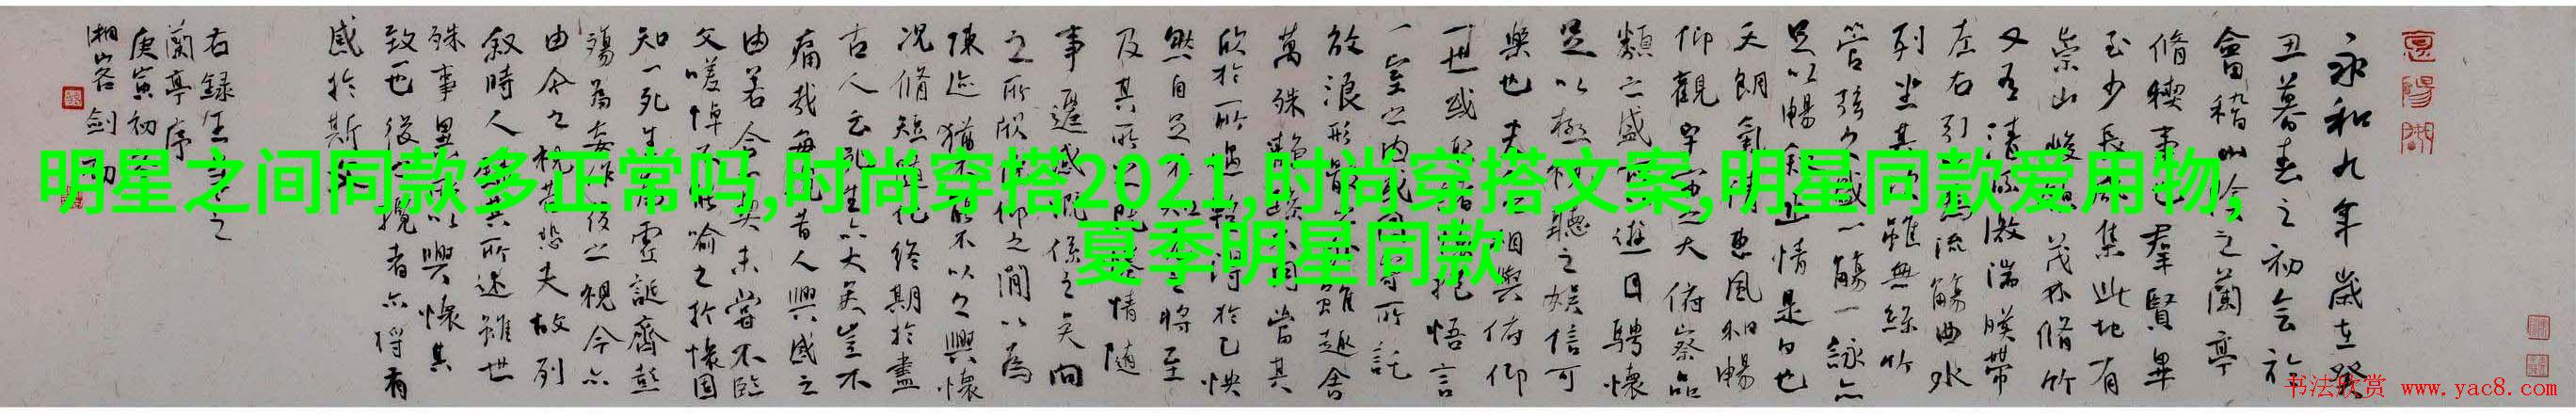 永和九年歲在癸
丑暮春之初會於
會稽山陰之蘭亭
脩禊事也羣賢畢
至少長咸集此地有
崇山峻領茂林脩竹
又有清流激湍暎帶
左右引以為流觴曲水
列坐其次雖無絲竹
管弦之盛一觴一詠亦
足以暢叙幽情是日也
天朗氣清惠風和暢
仰觀宇宙之大俯察品
類之盛所以遊目騁懷
足以極視聽之娛信可
樂也夫人之相與俯仰
一世或取諸懷抱悟言
一室之內或因寄所託
放浪形骸之外雖趣舍
萬殊靜躁不同當其
欣於所遇暫得於己怏
然自足不知老之將至
及其所之既惓情隨
事遷感慨係之矣向
之所欣俛仰之閒以為
陳迹猶不能不以之興懷
況脩短隨化終期於盡
古人云死生亦大矣豈不
痛哉每覽昔人興感之
由若合一契未嘗不臨
文嗟悼不能喻之於懷固
知一死生為虛誕齊彭
殤為妄作後之視今亦
由今之視昔悲夫故列
叙時人錄其所述雖世
殊事異所以興懷其
致一也後之攬者亦將有
感於斯文
右録王羲之
蘭亭序
庚寅初
湘客劍
明星之间同款多正常吗,时尚穿搭2021,时尚穿搭文案,明星同款爱用物,
夏季明星同款
书法欣赏 www.yac8.com